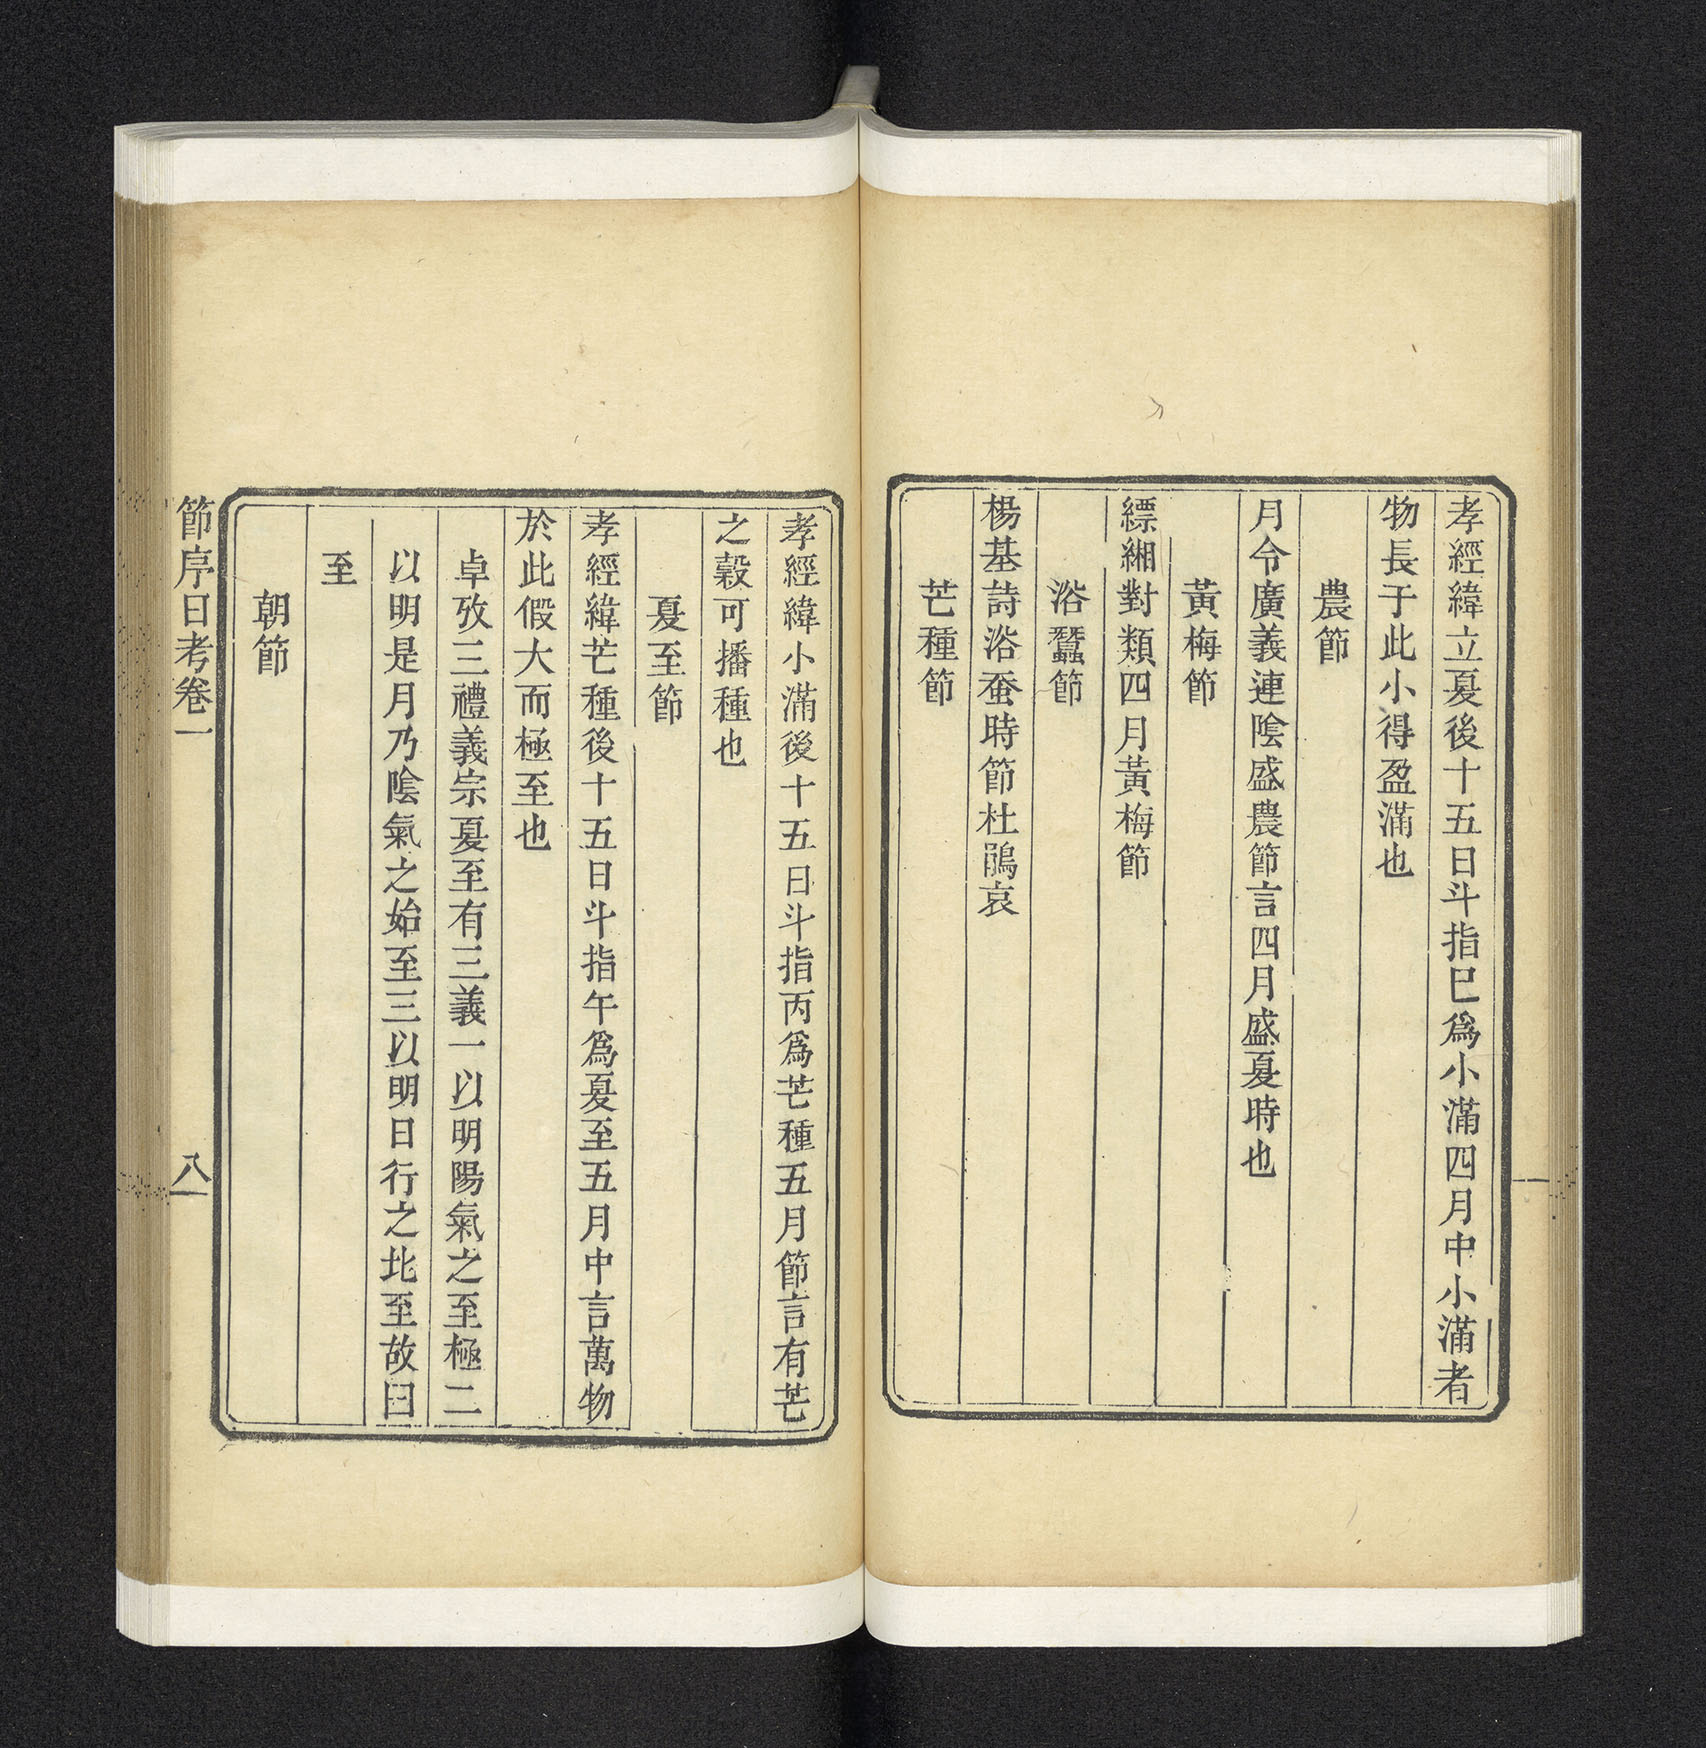 孝經緯立夏後十五日斗指巳爲小滿四月中小滿者
物長于此小得盈滿也
農節
月令廣義連陰盛農節言四月盛夏時也
黃梅節
縹緗對類四月黃梅節
浴蠶節
楊基詩浴蚕時節杜鵑哀
芒種節
孝經緯小滿後十五日斗指丙爲芒種五月節言有芒
之穀可播種也
夏至節
孝經緯芒種後十五日斗指午爲夏至五月中言萬物
於此假大而極至也
卓攷三禮義宗夏至有三義一以明陽氣之至極二
以明是月乃陰氣之始至三以明日行之北至故曰
至
朝節
節序日考卷一
八